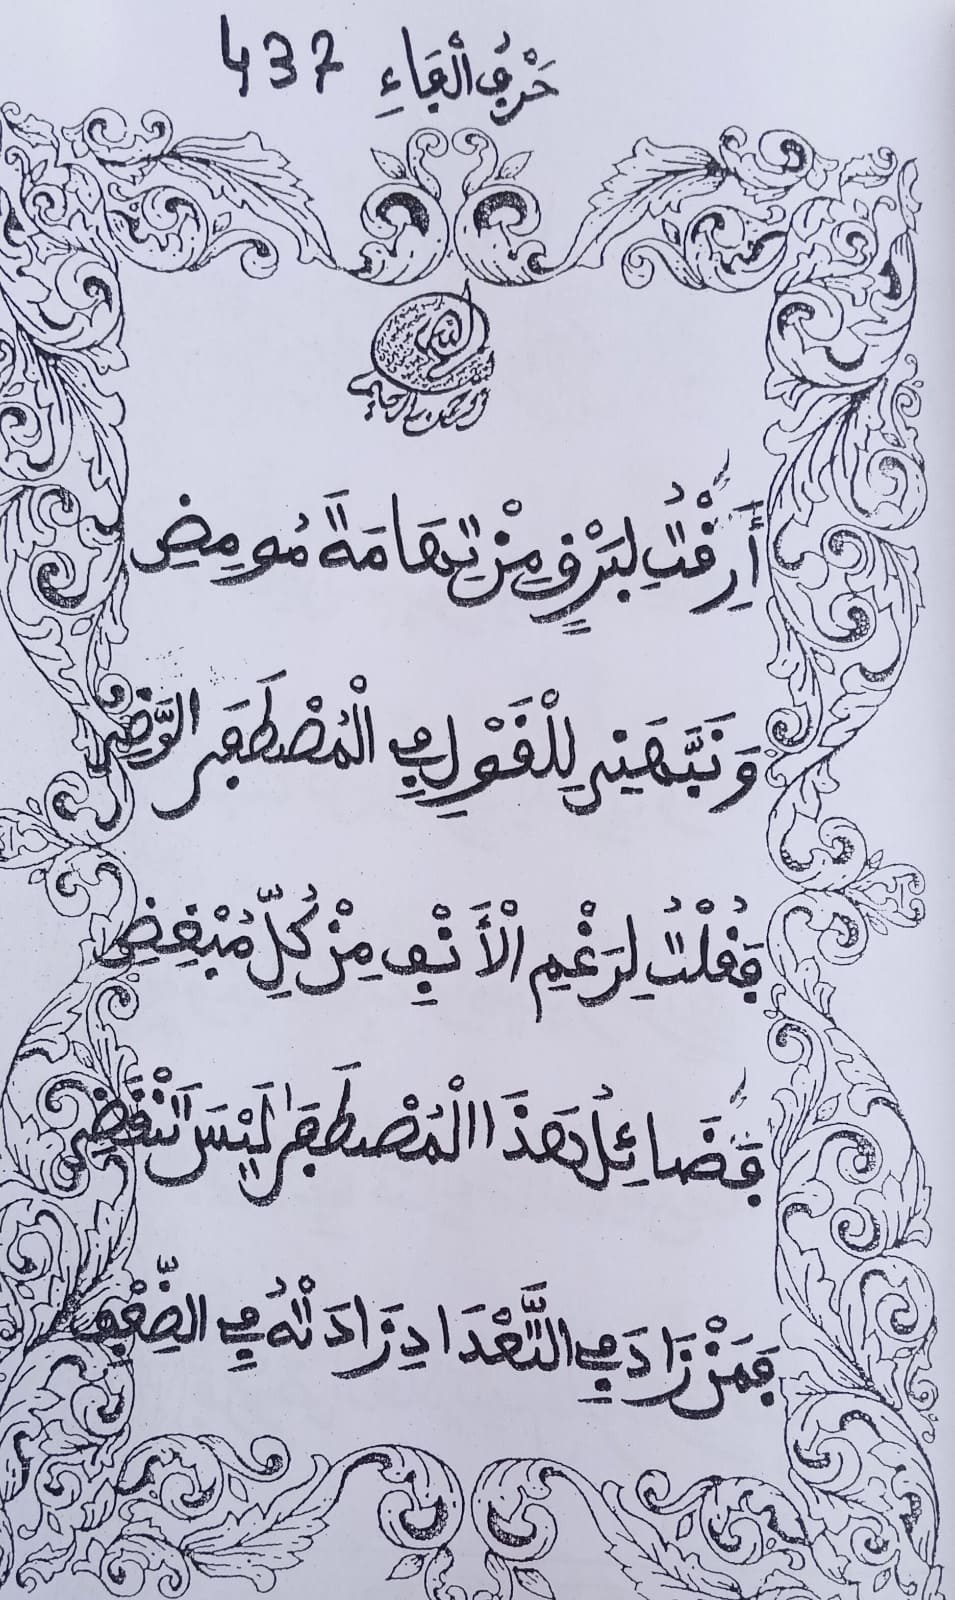 حَرْفُ الْفَاءِ 437
بسم الله الرحمن الرحيم
أَرِقْتُ لِبَرْقٍ مِنْ تِهَامَةَ مُومِضِ
وَنَبَّهَنِي لِلْقَوْلِ فِي الْمُصْطَفَى الْوَضِي
فَقُلْتُ لِرَغْمِ الْأَنْفِ مِنْ كُلِّ مُبْغِضِ
فَضَائِلُ هَذَا الْمُصْطَفَى لَيْسَ تَنْقَضِي
فَمَنْ زَادَ فِي التَّعْدَادِ زَادَتْهُ فِي الضِّعْفِ